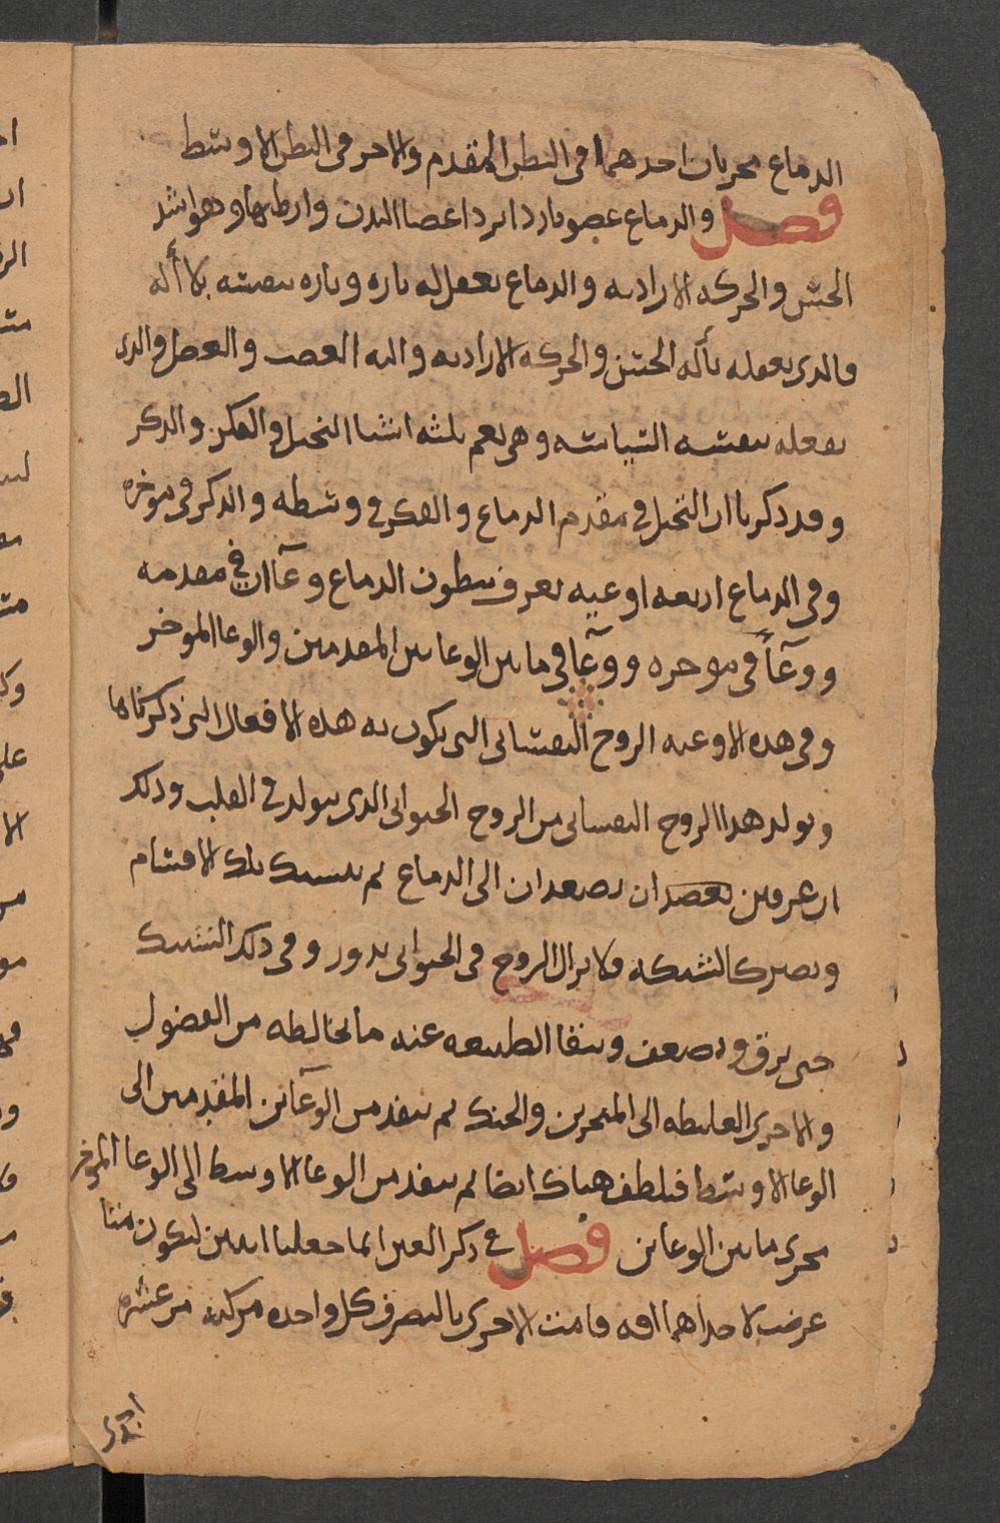 الدماغ مجريان احدهما فى البطن المقدم والاخر فى البطن الاوسط
فصل والدماغ عضو بارد ابرد اعضا البدن وارطبها وهو اشد
الحس والحركه الاراديه والدماغ يفعل له تاره وتاره بنفسه بلا أله
فالدى يفعله بأله الحس والحركه الاراديه واله العصب والعضل والدى
يفعله بنفسه السياسه وهى تعم ثلثه اشيا التخيل والفكر والدكر
وقد دكرنا ان التخيل فى مقدم الدماغ والفكر فى وسطه والدكر فى موخره
وفى الدماغ اربعه اوعيه تعرف ببطون الدماغ وعآان فى مقدمه
ووعآً فى موخره ووعآ فى ما بين الوعايين المقدمين والوعا الموخر
وفى هده الاوعيه الروح النفسانى التى يكون به هده الافعال التى دكرناها
وتولد هدا الروح النفسانى من الروح الحيوانى الدى يتولد فى القلب ودلك
ان عرقين يصعدان الى الدماغ ثم ينقسمان تلك الاقسام
وتصير كالشبكه فلا يزال الروح فى الحيوانى يدور وفى دلك التشبيك
حتى يرق ويصعف وينقا الطبيعه عنه ما يخالطه من الفضول
والاجزى الغليظه الى المنخرين والحنك ثم ينفد من الوعآئين المقدمين الى
الوعا الاوسط فيلطف هناك ايضا ثم ينفد من الوعا الاوسط الى الوعا الموخر
مجرى ما بين الوعاين فصل فى دكر العين انما جعلنا اثنين ليكون متا
عرضت لاحداهما افه قامت الاخرى بالبصر وكل واحده مركبه من عشره
اجزى